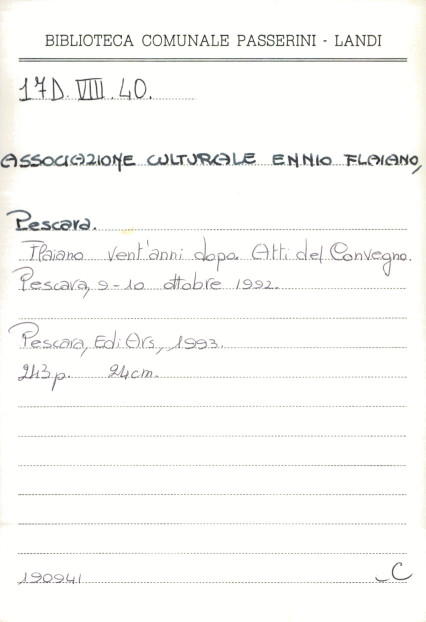 BIBLIOTECA COMUNALE PASSERINI - LANDI
17D. VIII. 40.
ASSOCIAZIONE CULTURALE ENNIO FLAIANO,
Pescara.
Flaiano vent'anni dopo. Atti del Convegno.
Pescara, 9-10 ottobre 1992.
Pescara, EdiArs, 1993.
243 p. 24 cm.
190941 C